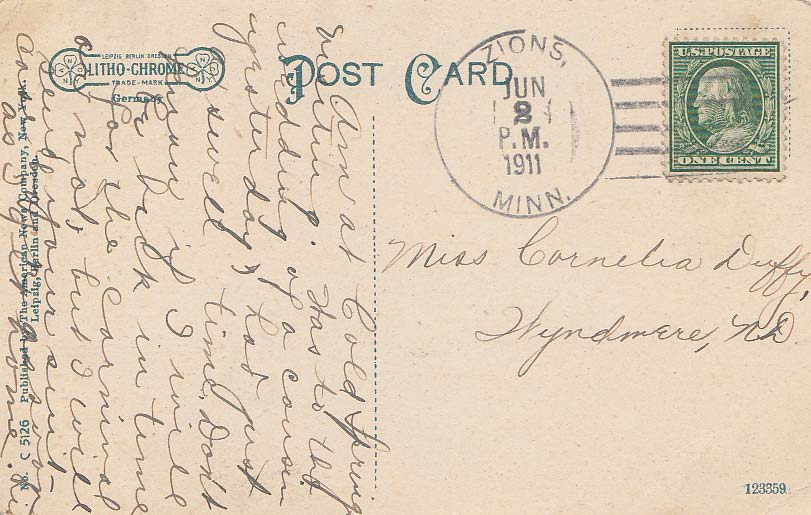 LEIPZIG BERLIN DRESDEN
LITHO-CHROME
TRADE-MARK
Germany
POST CARD
ZIONS,
JUN
2
P.M.
1911
MINN.
U.S. POSTAGE
ONE CENT
Am at Cold Springs
visiting. Was to the
wedding of a cousin
yesterday & had just
a swell time. Don't
know if I will
be back in time
for the carnival
or not but I will
send your suit-
as soon
as I get home.
Miss Cornelia Duffy,
Wyndmere, N.D.
No. C 5126 Published by The American News Company, New York.
Leipzig, Berlin and Dresden.
123359